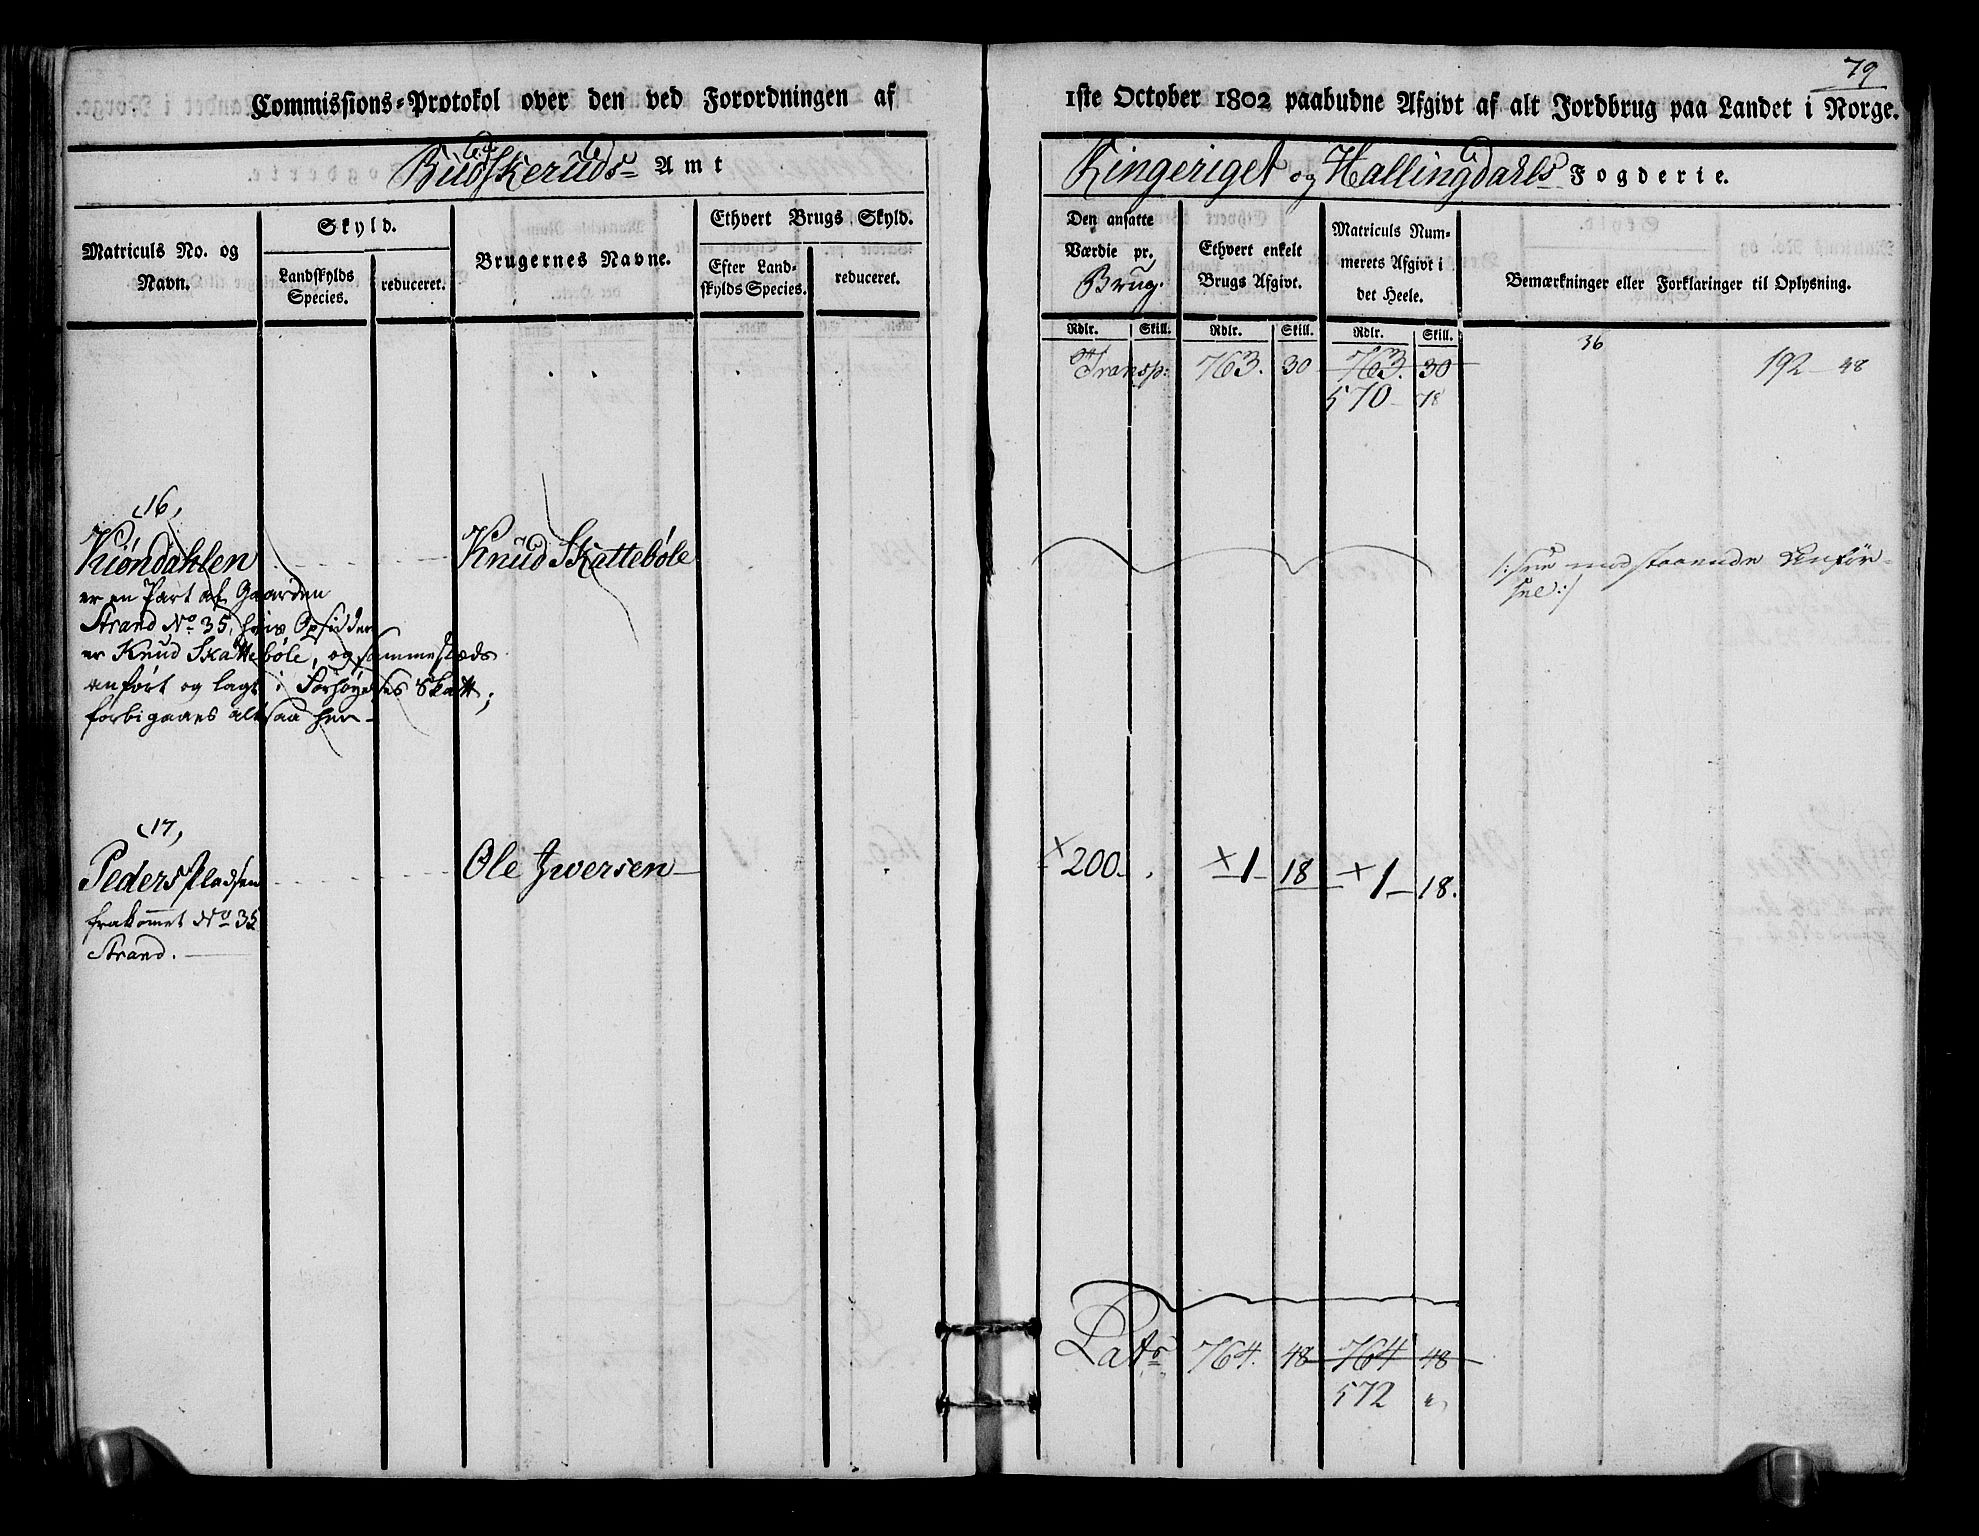 79
Commissions-Protokol over den ved Forordningen af 1ste October 1802 paabudne Afgivt af alt Jordbrug paa Landet i Norge.
Budskeruds Amt
Ringeriget og Hallingdahls Fogderie.
Matriculs No. og Navn.
Skyld.
Landskylds Species.
reduceret.
Brugernes Navne.
Ethvert Brugs Skyld.
Efter Landskylds Species.
reduceret.
Den ansatte Værdie pr. Brug.
Ethvert enkelt Brugs Afgivt.
Matriculs Nummerets Afgivt i det Heele.
Bemærkninger eller Forklaringer til Oplysning.
Rdlr. Skill. Rdlr. Skill. Rdlr. Skill.
36
Transp: 763. 30 763. 30 192 - 48
570 - 78
16,
Kiøndahlen Knud Skattebøle /: see modstaaende Anfør-
sel :/
er en Part af Gaarden
Strand No. 35, hvis Opsidder
er Knud Skattebøle, og sammestæds
anført og lagt i Forhøyelses Skatt;
forbigaaes altsaa her -
17,
Peders Pladsen Ole Iversen - × 200 - × 1 - 18 × 1 - 18.
frakommet No. 35
Strand.
Lats 764. 48 764 48
572 "